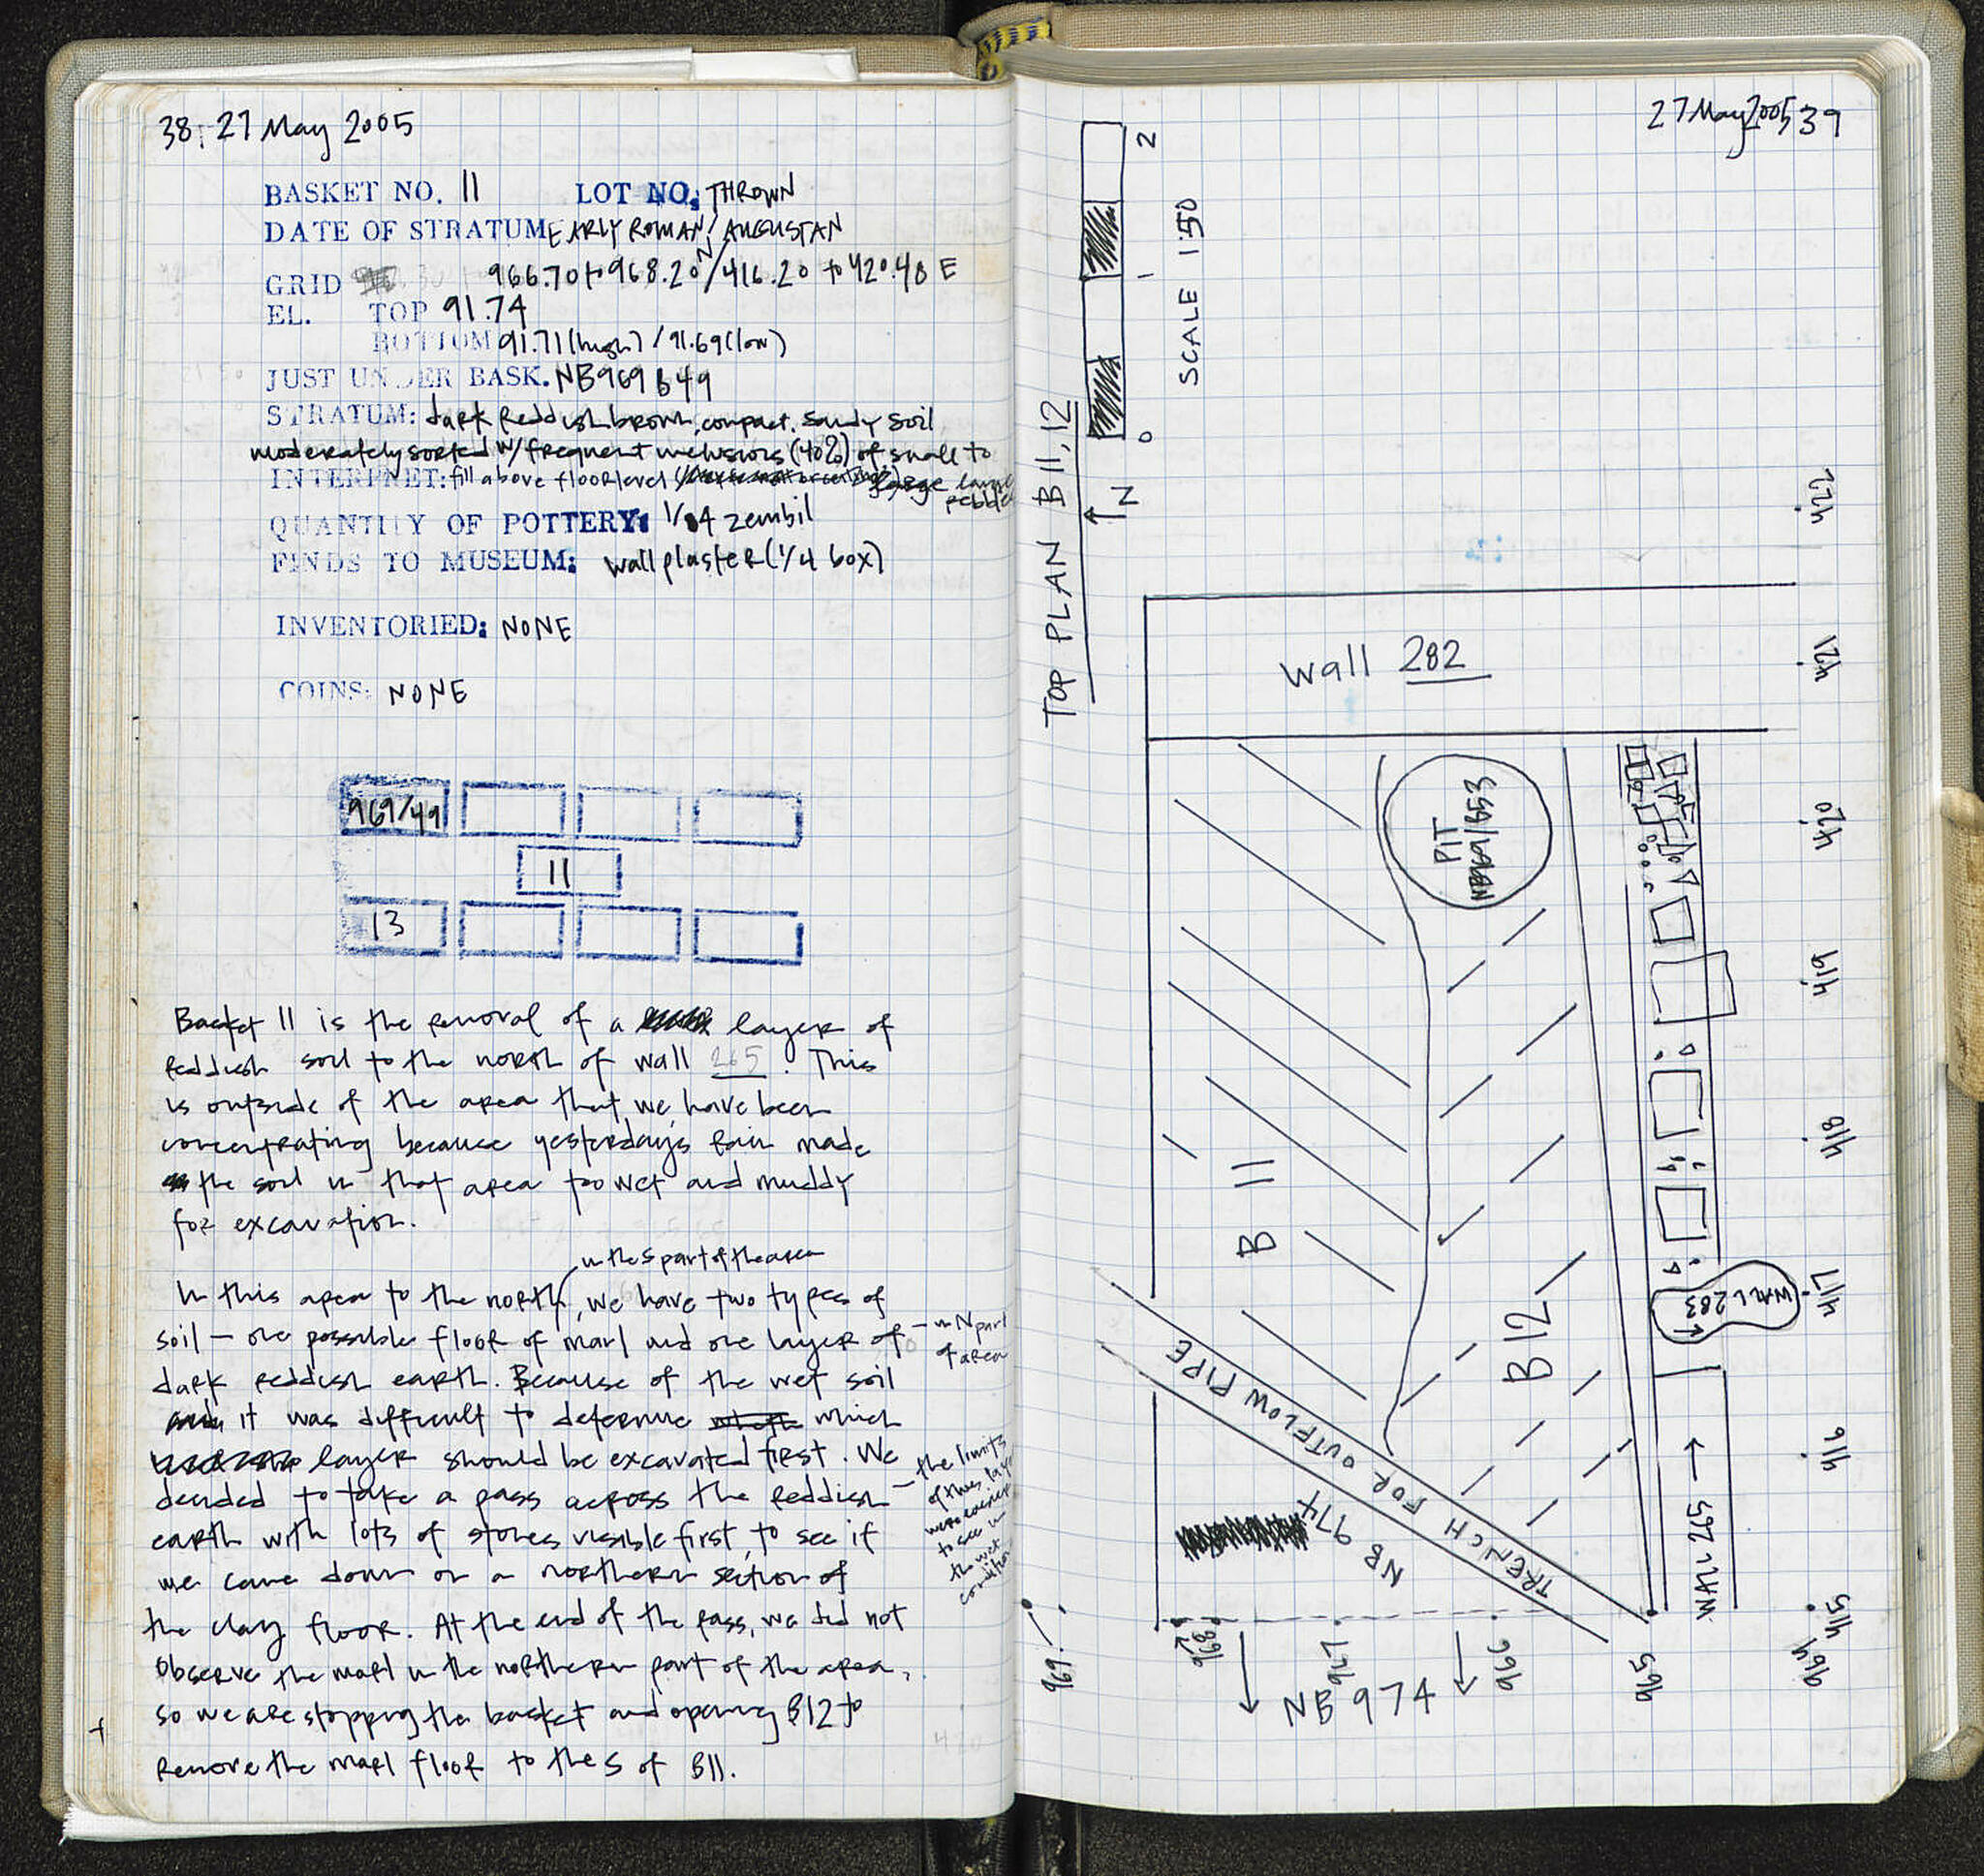 38: 27 May 2005
BASKET NO. 11 LOT NO: THROWN
DATE OF STRATUM EARLY ROMAN/AUGUSTAN
GRID 966.70 to 968.20 N/416.20 to 420.48 E
EL. TOP 91.74
BOTTOM 91.71 (high) / 91.69 (low)
JUST UNDER BASK. NB969 B49
STRATUM: dark Reddish brown, compact, sandy soil
moderately sorted w/ frequent inclusions (40%) of small to
INTERPRET: fill above floor level large
pebbles
QUANTITY OF POTTERY: 1/4 zembil
FINDS TO MUSEUM: wall plaster (1/4 box)
INVENTORIED: NONE
COINS: NONE
969/49
11
13
Basket 11 is the removal of a layer of
reddish soil to the north of wall 265. This
is outside of the area that we have been
concentrating because yesterday's rain made
the soil in that area too wet and muddy
for excavation.
in the S part of the area
In this area to the north, we have two types of
soil — one possible floor of marl and one layer of – in N part
of area
dark reddish earth. Because of the wet soil
it was difficult to determine which
layer should be excavated first. We
decided to take a pass across the reddish – the limits
of this layer
were easier
to see in
the wet
conditions
earth with lots of stones visible first, to see if
we came down on a northern section of
the clay floor. At the end of the pass, we did not
observe the marl in the northern part of the area,
so we are stopping the basket and opening B12 to
remove the marl floor to the S of B11.
27 May 2005 39
TOP PLAN B 11, 12
N
0 1 2
SCALE 1:50
Wall 282
PIT
NB969/B53
B 11
B12
WALL 283
WALL 265
TRENCH FOR OUTFLOW PIPE
NB 974
NB 974
422
421
420
419
418
417
416
415
969
968
967
966
965
964